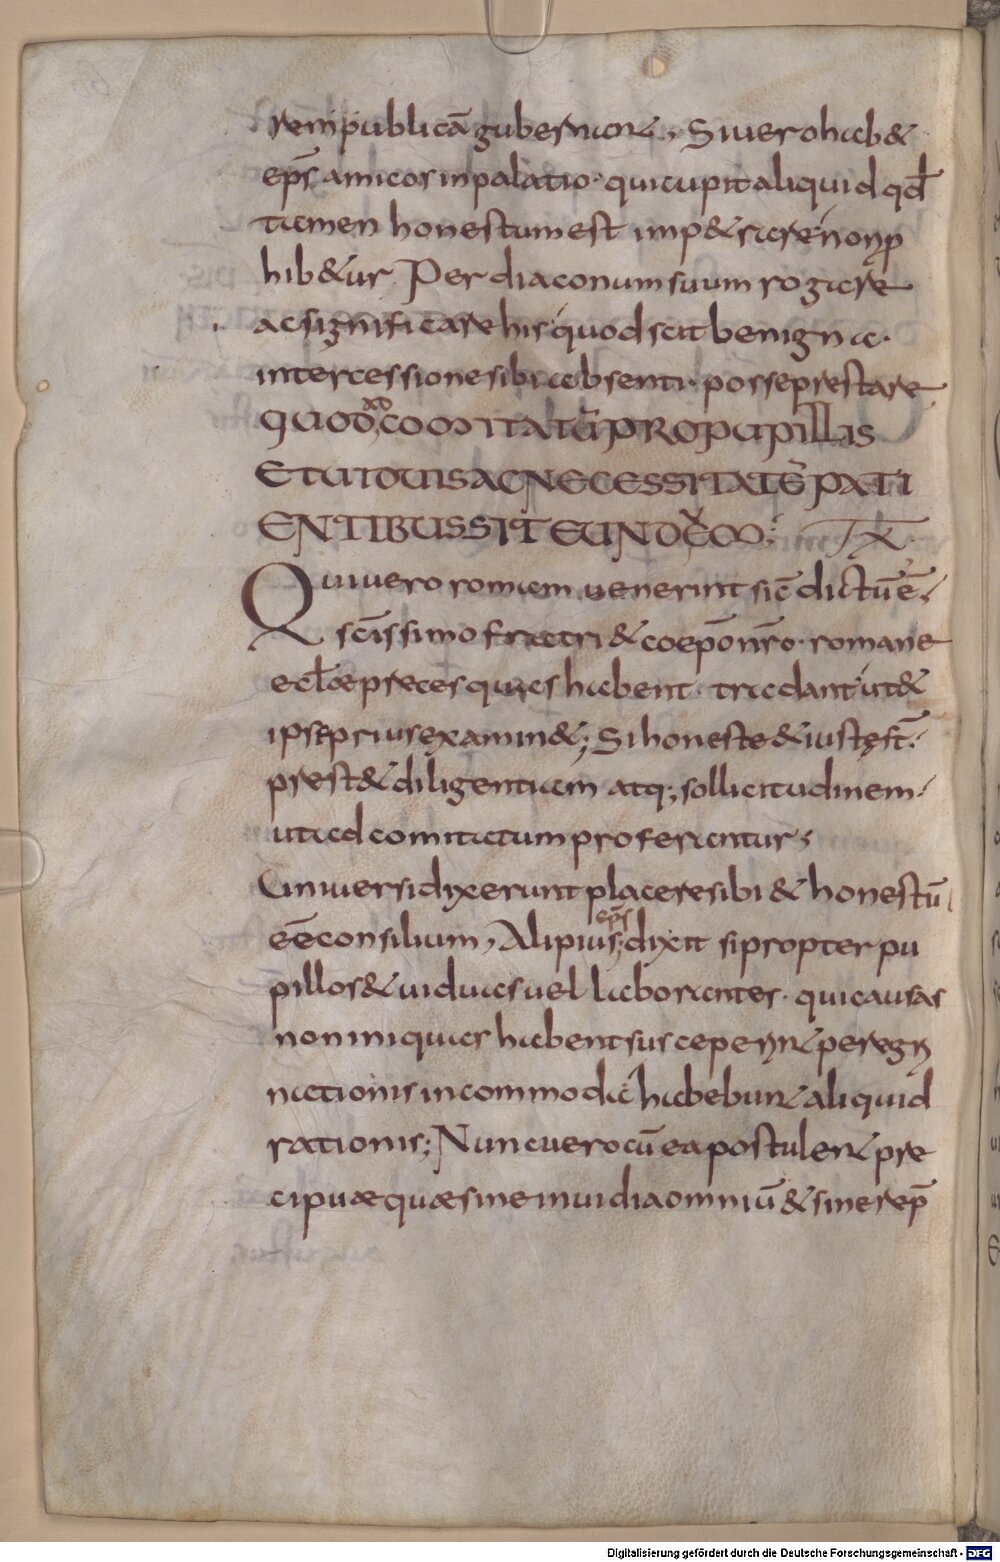 rempublicā gubernant, Si uero hab&
ep̄s amicos in palatio· qui cupit aliquid qđ
tamen honestum est imp&rare non p
hib&ur. Per diaconum suum rogare
ac significare his quod scit benigna·
intercessione sibi absenti· posse prestare
QUOD AD COMITATŪ PRO PUPILLIS
ET UIDUIS AC NECESSITATĒ PATI
ENTIBUS SIT EUNDŪM; IX
Qui uero romam uenerint sic̄ dictū ē,
sc̄issimo fratri & coep̄o nr̄o· romane
eccłæ preces quas habent· tradant ut &
ipse prius examin&; Si honeste & iustę st̄·
prest& diligentiam atq; sollicitudinem
ut ad comitatum proferantur;
Uniuersi dixerunt placere sibi & honestū
eē consilium, Alipius ep̄s; dixit si propter pu
pillos & uiduas uel laborantes· qui causas
non iniquas habent susceperint peregri
nationis incommoda habebunt aliquid
rationis; Nunc uero cū ea postulent pre
cipuæ quæ sine inuidia omniū & sine rep̄
Digitalisierung gefördert durch die Deutsche Forschungsgemeinschaft - DFG